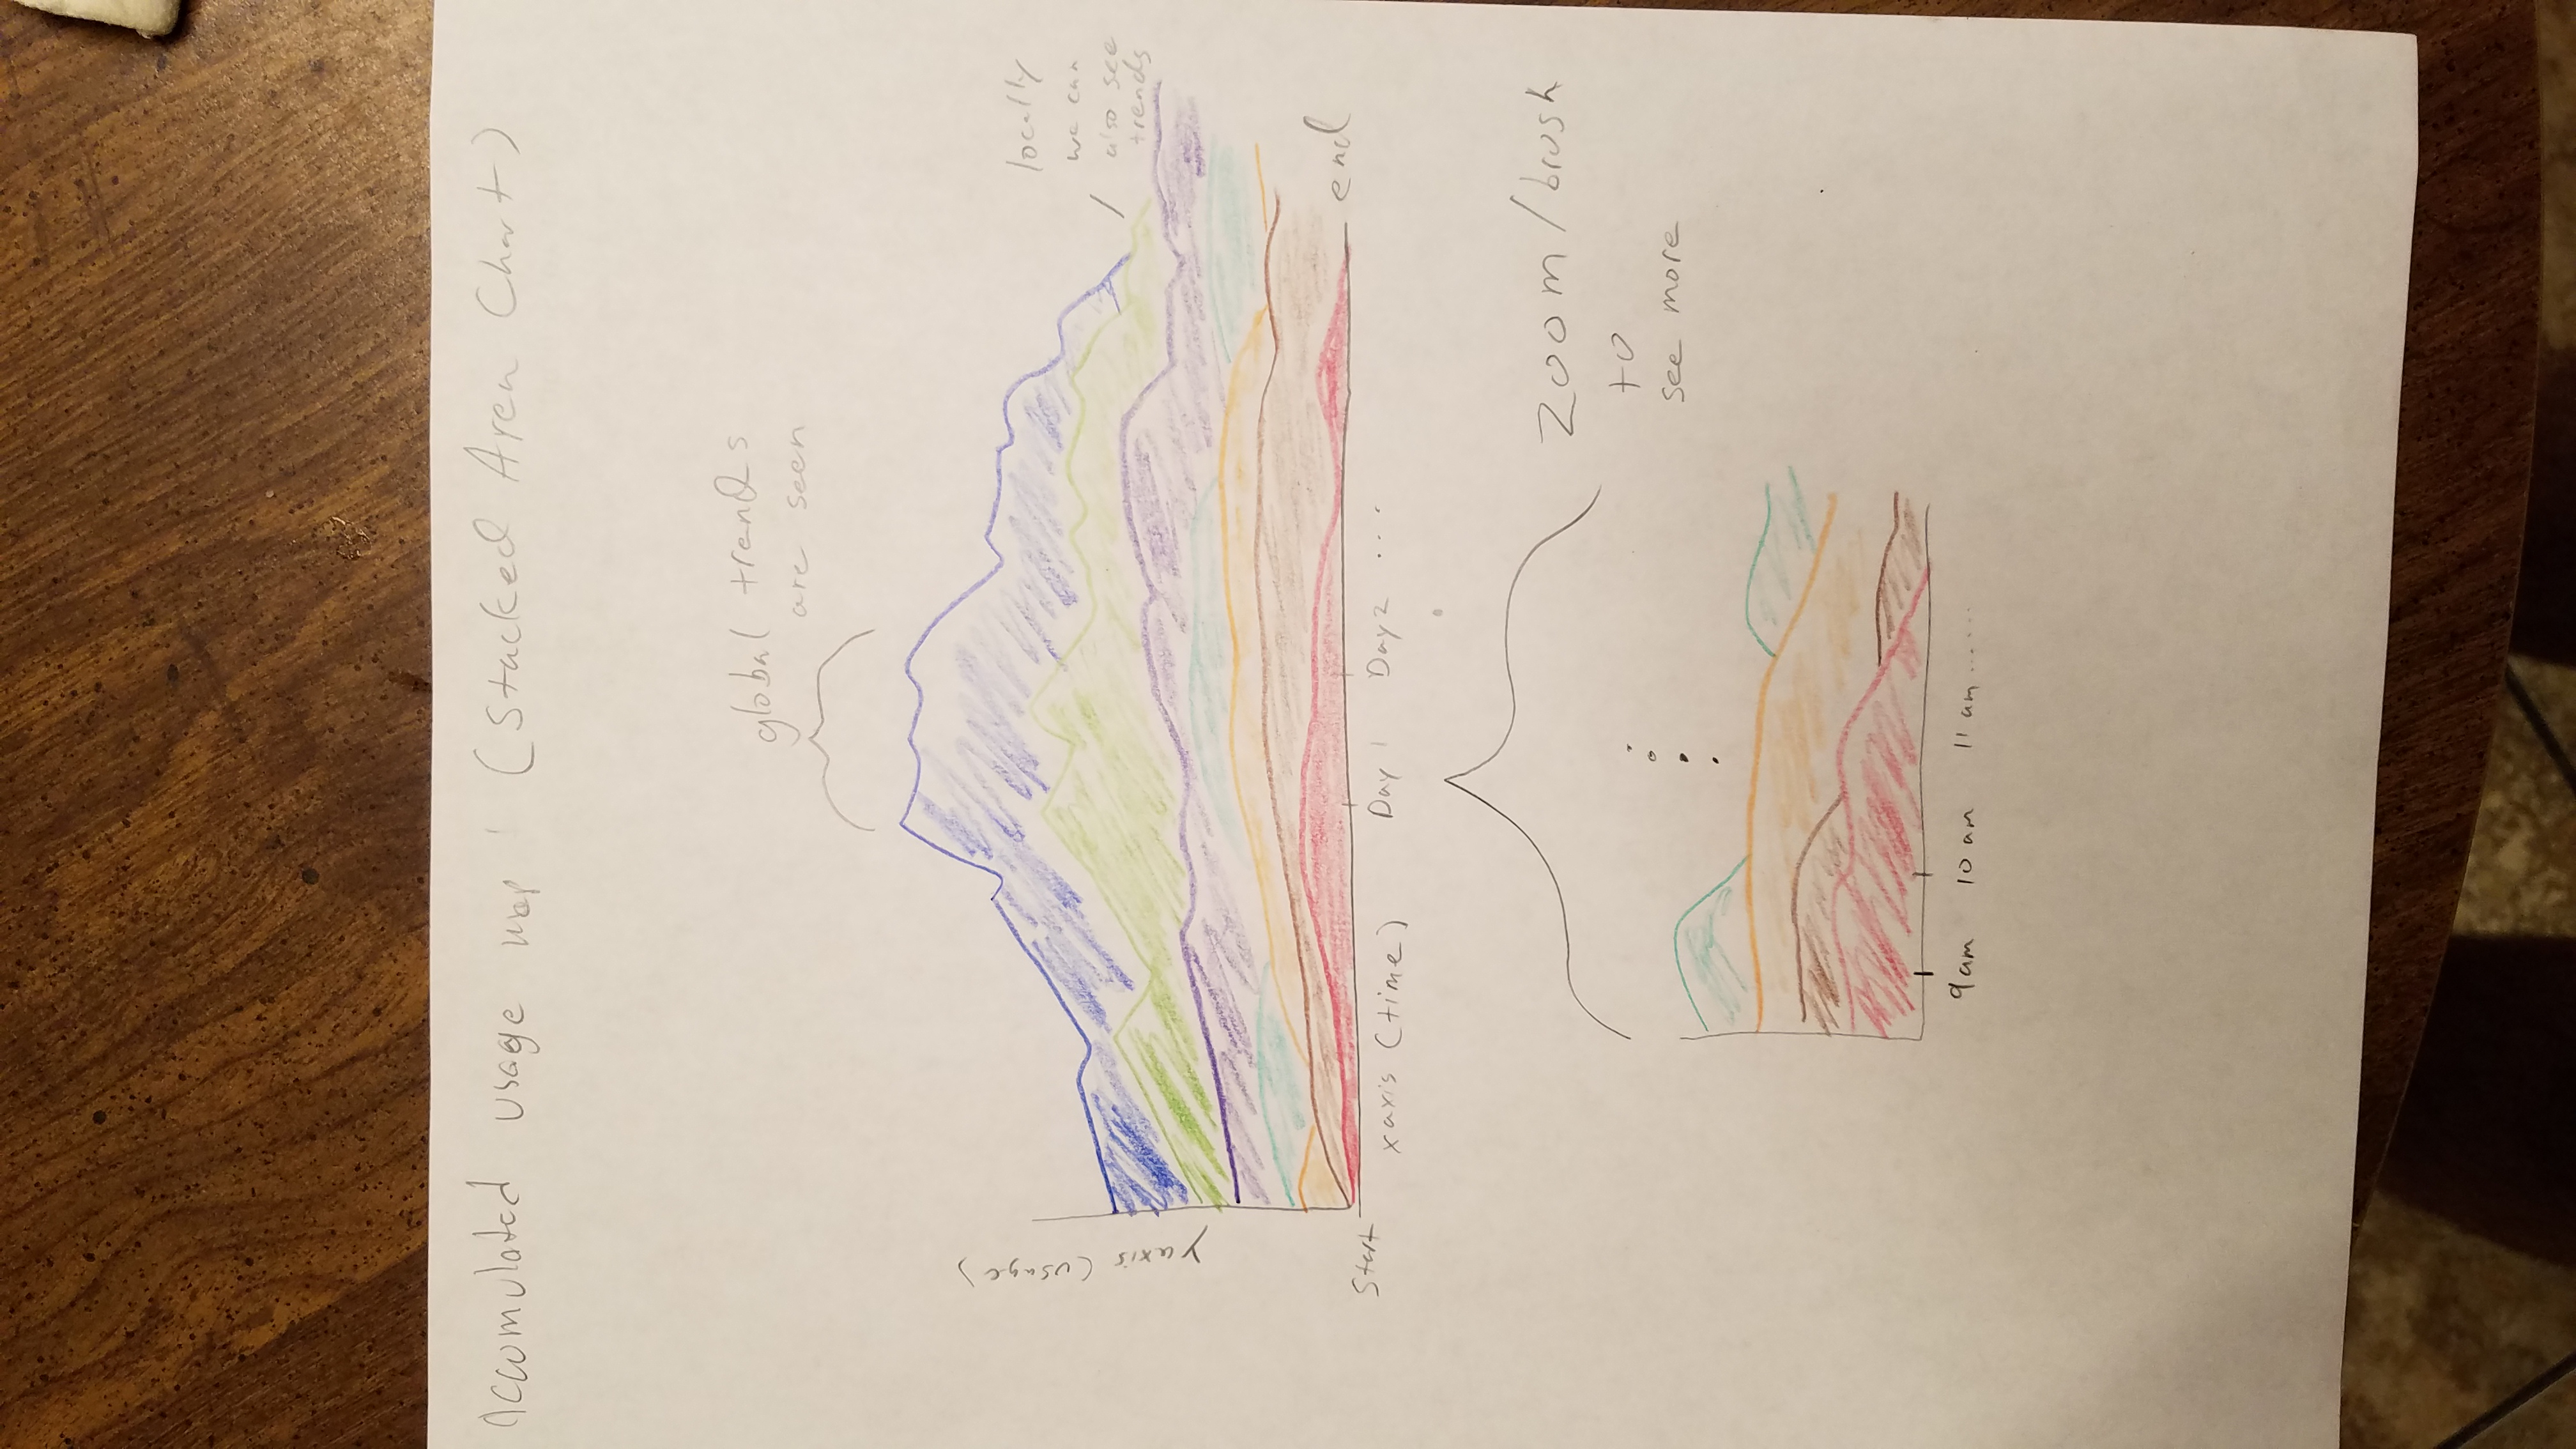 Accumulated usage map (Stacked Area Chart)
global trends
are seen
y axis (usage)
locally
we can
also see
trends
Start
end
x axis (time)
Day 1
Day 2 ...
zoom/brush
to
see more
9 am 10 am 11 am ......